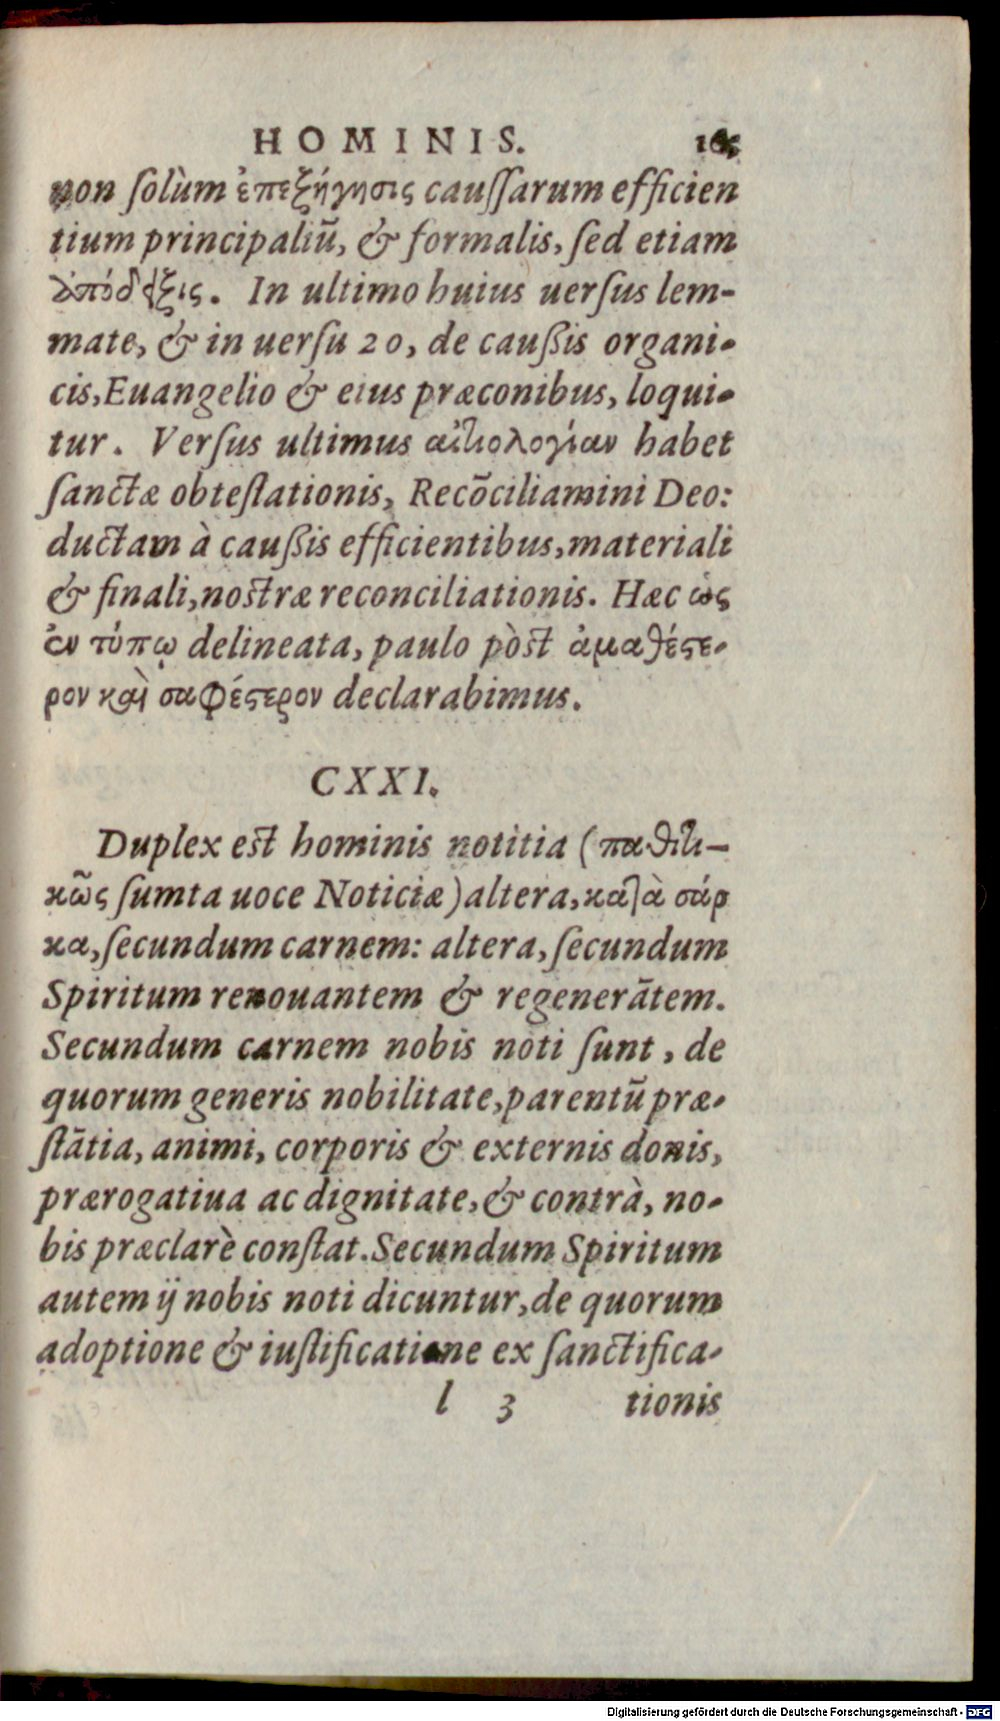 HOMINIS. 165
non ſolùm ἐπεξήγησις cauſſarum efficien
tium principaliũ, & formalis, ſed etiam
ἀπόδειξις. In ultimo huius uerſus lem-
mate, & in uerſu 20, de cauſsis organi-
cis, Euangelio & eius præconibus, loqui-
tur. Verſus ultimus αἰτιολογίαν habet
ſanctæ obteſtationis, Recõciliamini Deo:
ductam à cauſsis efficientibus, materiali
& finali, nostræ reconciliationis. Hæc ὡς
ἐν τύπῳ delineata, paulo pòst ἀμαθέστε-
ρον καὶ σαφέστερον declarabimus.
CXXI.
Duplex est hominis notitia (παθητι-
κῶς ſumta uoce Noticiæ) altera, κατὰ σάρ
κα, ſecundum carnem: altera, ſecundum
Spiritum renouantem & regenerãtem.
Secundum carnem nobis noti ſunt, de
quorum generis nobilitate, parentũ præ-
ſtãtia, animi, corporis & externis donis,
prærogatiua ac dignitate, & contrà, no-
bis præclarè conſtat. Secundum Spiritum
autem ij nobis noti dicuntur, de quorum
adoptione & iuſtificatione ex ſanctifica-
l 3 tionis
Digitalisierung gefördert durch die Deutsche Forschungsgemeinschaft - DFG